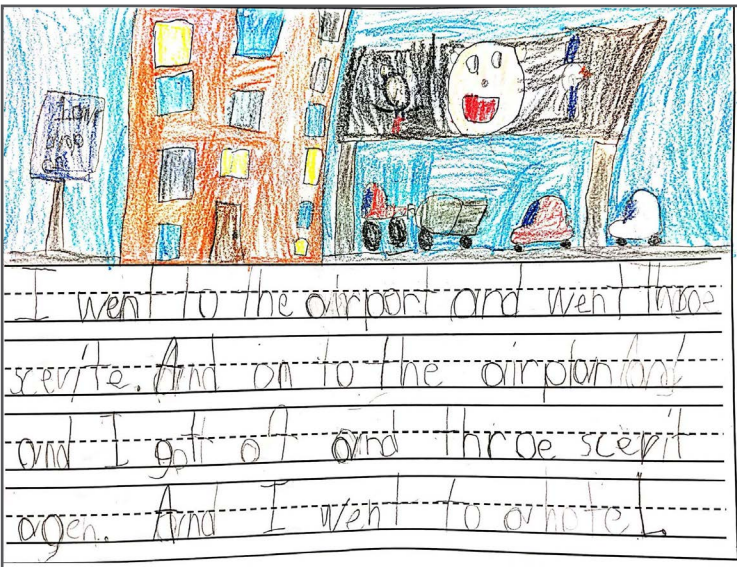 I went to the airport and went throe
scevite. And on to the airplan
and I gott of and throe scevit
agen. And I went to a hotel.